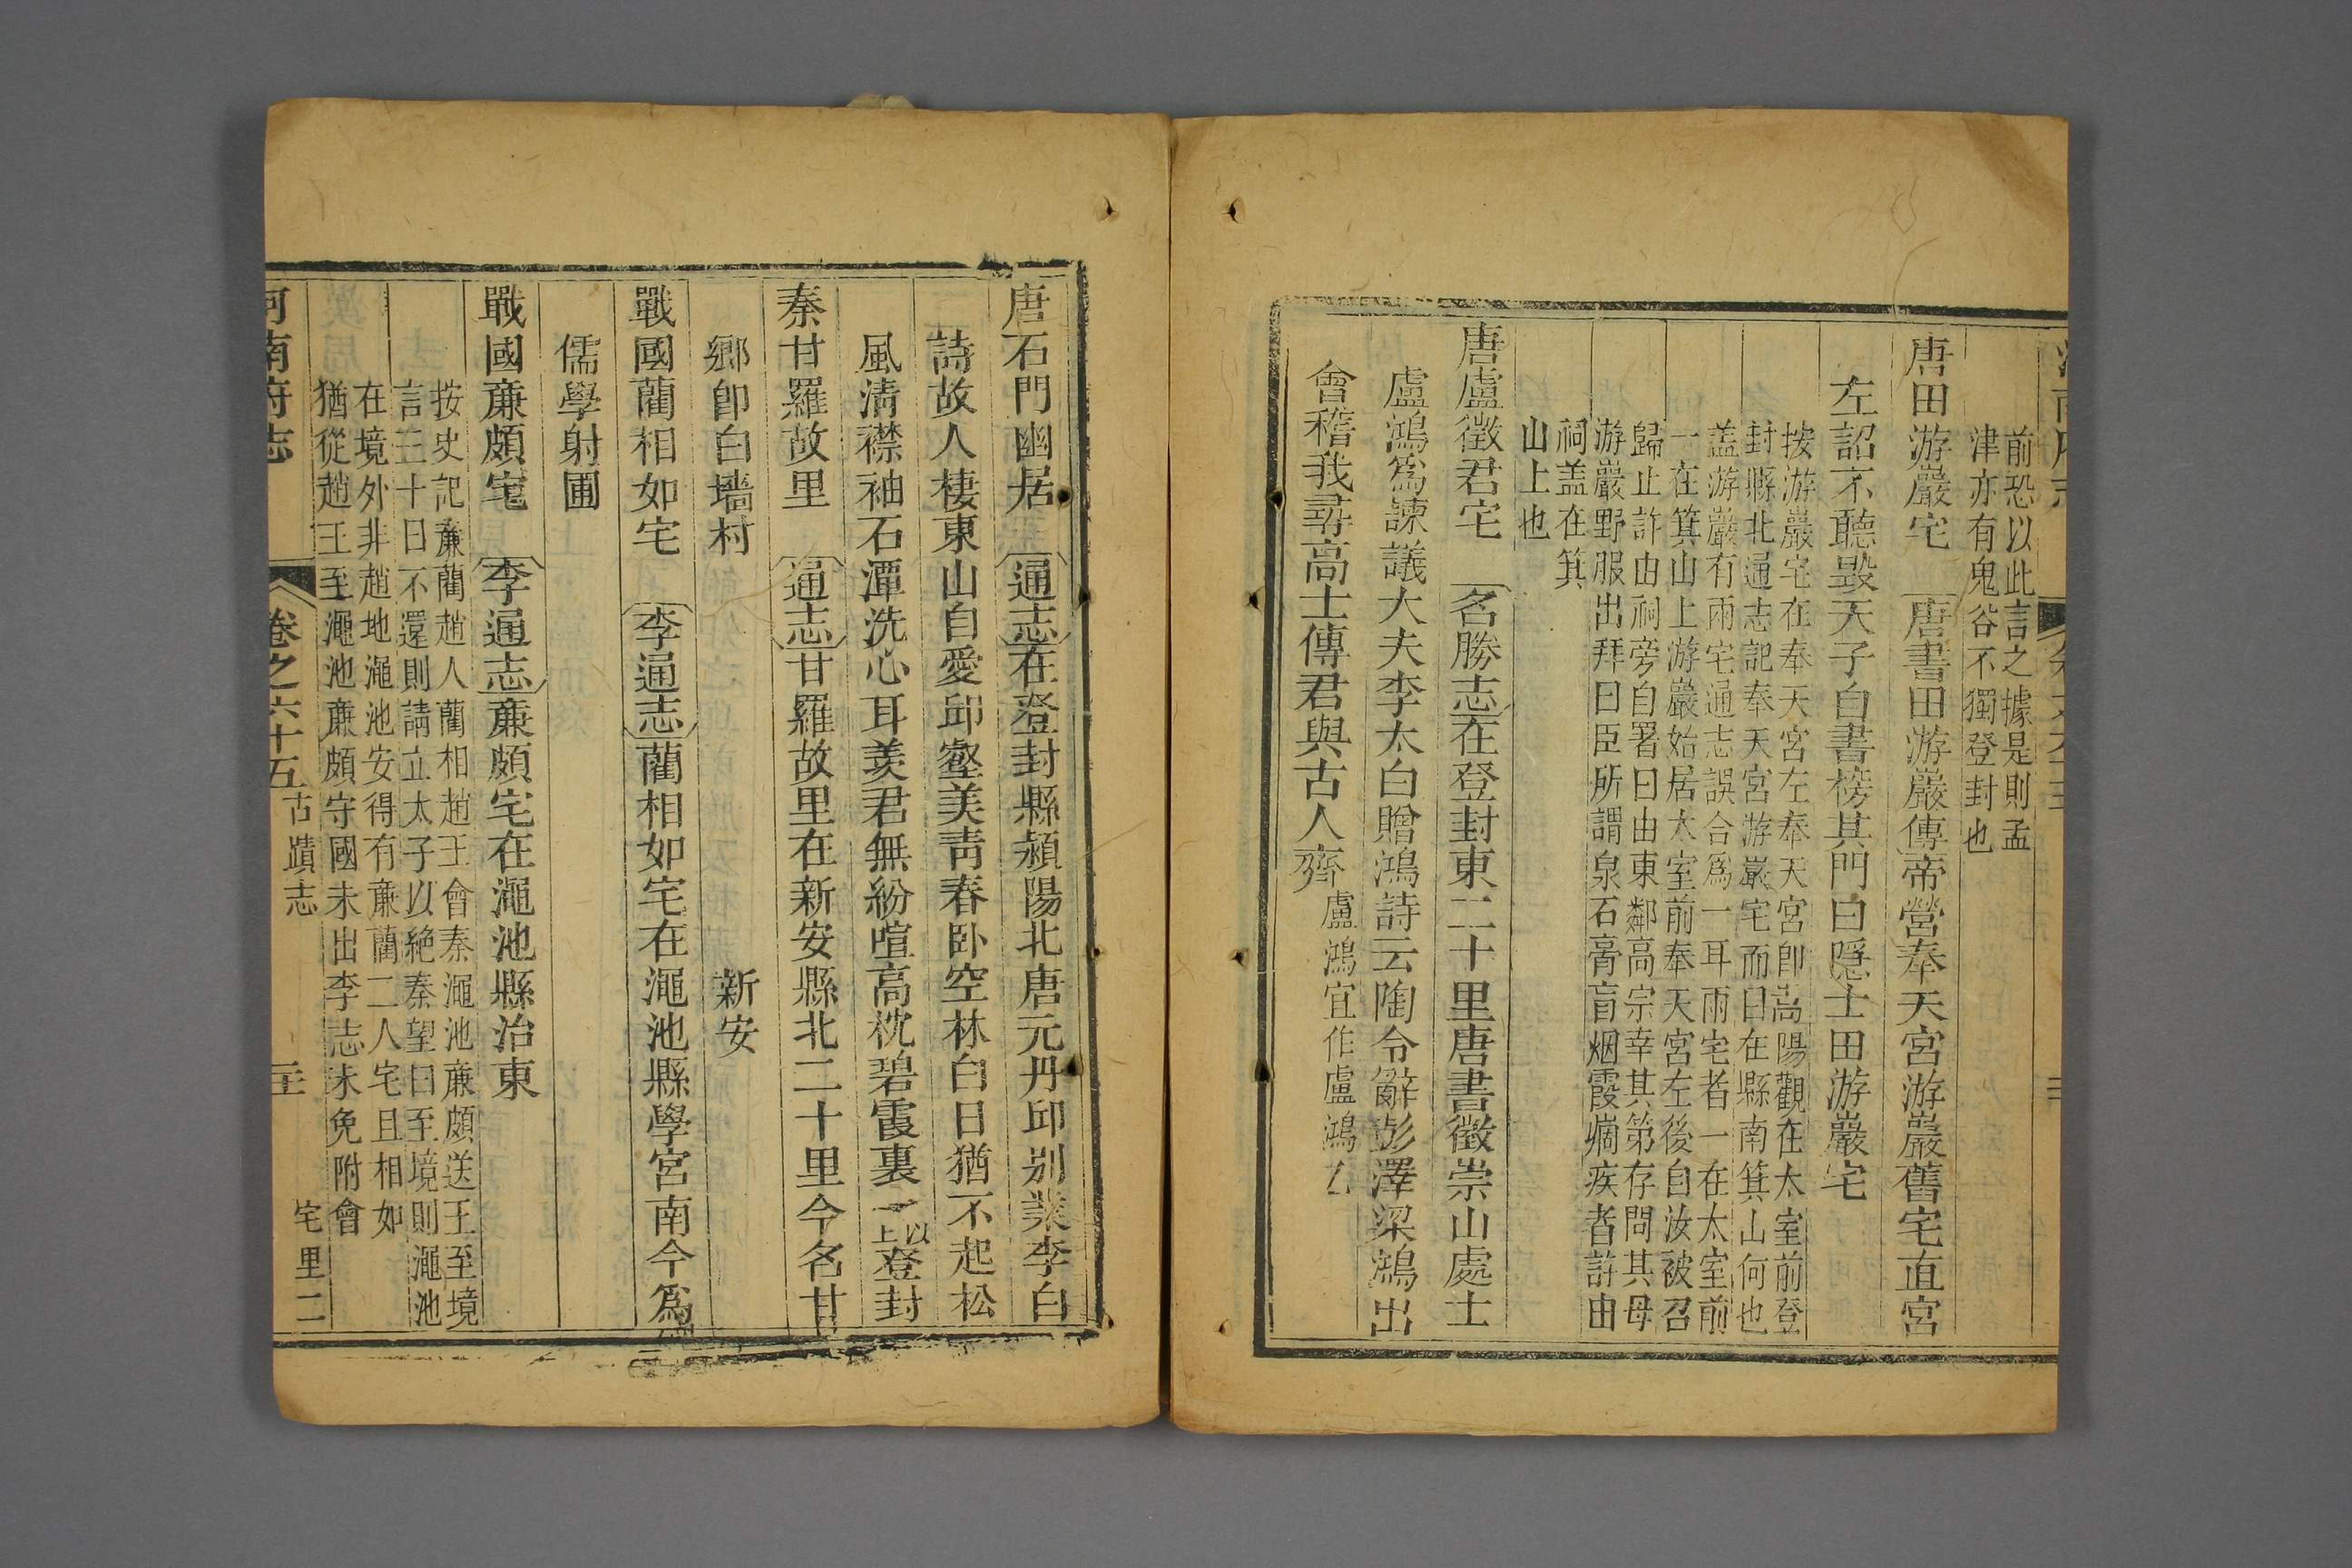 前恐以此言之據是則孟
津亦有鬼谷不獨登封也
唐田游巖宅　唐書田游巖傳帝營奉天宮游巖舊宅直宮
左詔不聽毀天子自書榜其門曰隱士田游巖宅
按游巖宅在奉天宮左奉天宮卽嵩陽觀在太室前登
封縣北通志記奉天宮游巖宅而曰在縣南箕山何也
盖游巖有兩宅通志誤合爲一耳兩宅者一在太室前
一在箕山上游巖始居太室前奉天宮左後自汝被召
歸止許由祠旁自署曰由東鄰高宗幸其第存問其母
游巖野服出拜曰臣所謂泉石膏肓烟霞痼疾者許由
祠盖在箕
山上也
唐盧徵君宅　名勝志在登封東二十里唐書徵崇山處士
盧鴻爲諫議大夫李太白贈鴻詩云陶令辭彭澤梁鴻出
會稽我尋高士傳君與古人齊盧鴻宜作盧鴻乙
唐石門幽居　通志在登封縣潁陽北唐元丹邱別業李白
詩故人棲東山自愛邱壑美靑春卧空林白日猶不起松
風清襟袖石潭洗心耳羨君無紛喧高枕碧霞裏　以上登封
秦甘羅故里　通志甘羅故里在新安縣北二十里今名甘
鄉卽白墻村　新安
戰國藺相如宅　李通志藺相如宅在澠池縣學宮南今爲
儒學射圃
戰國廉頗宅　李通志廉頗宅在澠池縣治東
按史記廉藺趙人藺相趙王會秦澠池廉頗送王至境
言三十日不還則請立太子以絶秦望曰至境則澠池
在境外非趙地澠池安得有廉藺二人宅且相如
猶從趙王至澠池廉頗守國未出李志未免附會
河南府志　卷之六十五　古蹟志　宅里二